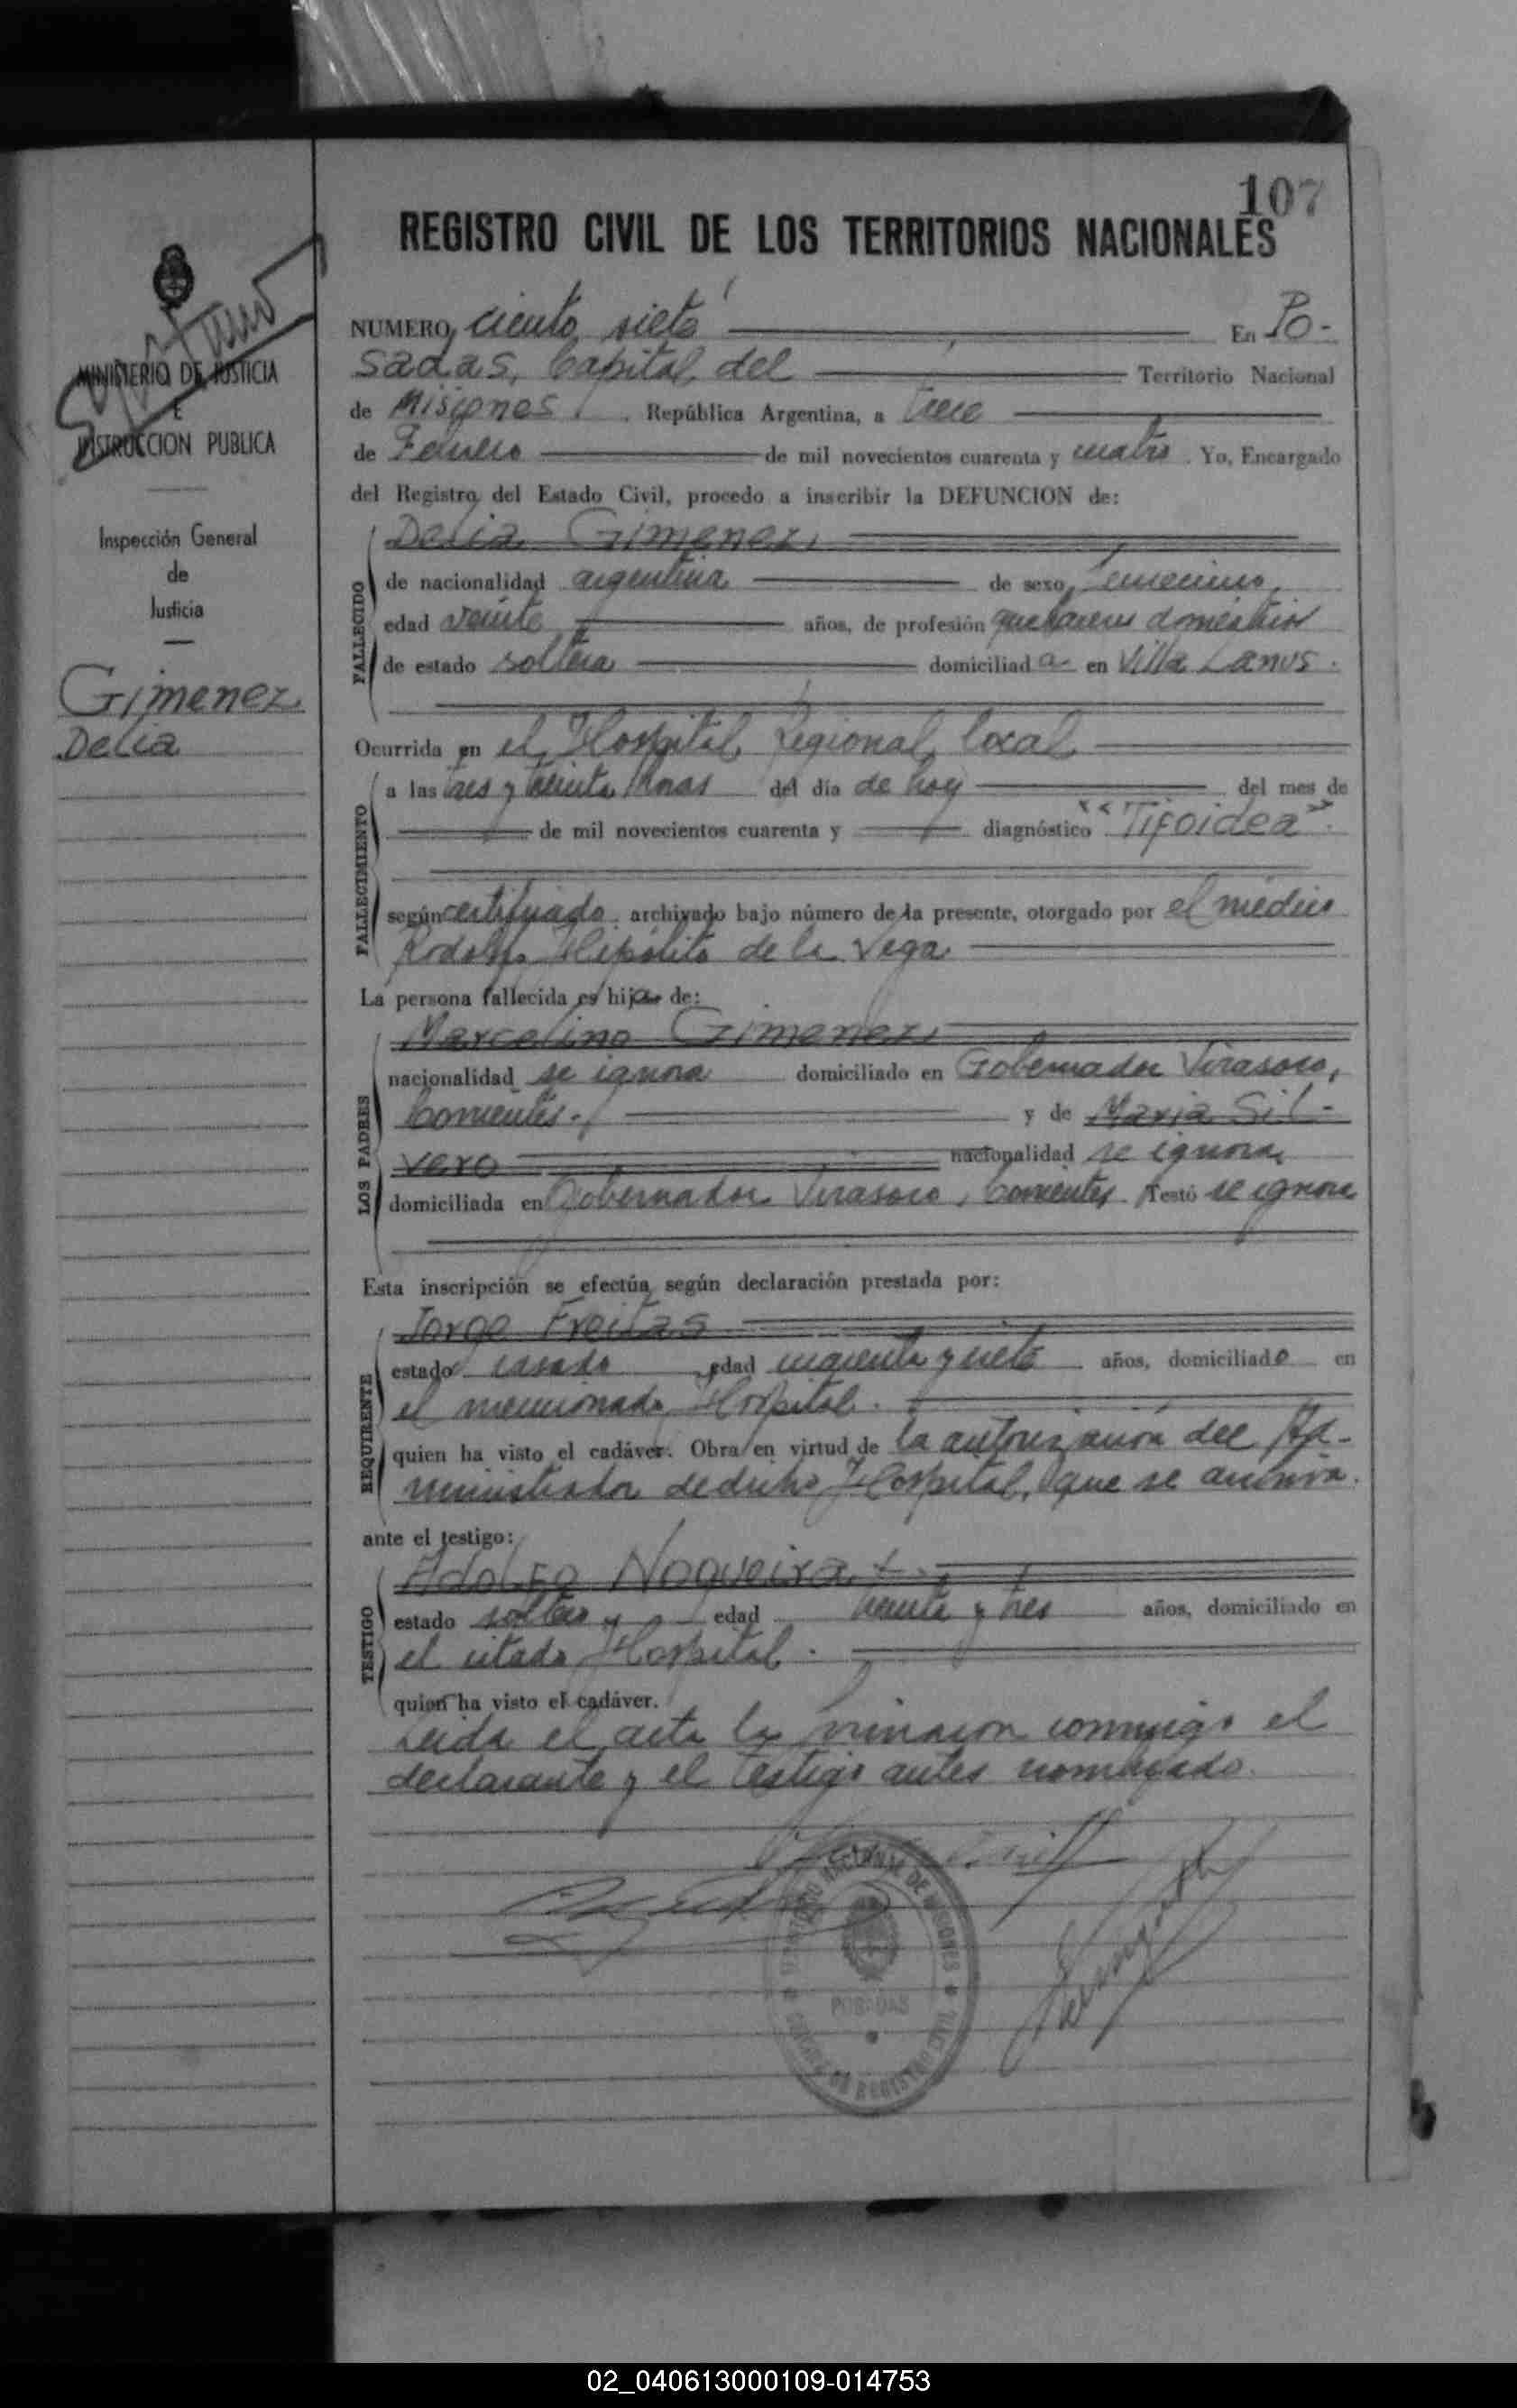 107
REGISTRO CIVIL DE LOS TERRITORIOS NACIONALES
MINISTERIO DE JUSTICIA
E
INSTRUCCION PUBLICA
Inspección General
de
Justicia
Gimenez
Delia
NUMERO ciento siete En Po-
sadas, Capital del Territorio Nacional
de Misiones. República Argentina, a trece
de Febrero de mil novecientos cuarenta y cuatro. Yo, Encargado
del Registro del Estado Civil, procedo a inscribir la DEFUNCION de:
FALLECIDO
Delia Gimenez,
de nacionalidad argentina de sexo femenino,
edad veinte años, de profesión quehaceres domésticos
de estado soltera domiciliada en Villa Lanus.
Ocurrida en el Hospital Regional local
FALLECIMIENTO
a las tres y treinta horas del día de hoy del mes de
de mil novecientos cuarenta y diagnóstico "Tifoidea".
según certificado archivado bajo número de la presente, otorgado por el médico
Rodolfo Hipólito de la Vega
La persona fallecida es hija de:
LOS PADRES
Marcelino Gimenez,
nacionalidad se ignora domiciliado en Gobernador Virasoro,
Corrientes.- y de Maria Sil-
vero nacionalidad se ignora
domiciliada en Gobernador Virasoro, Corrientes. Testó se ignora
Esta inscripción se efectúa según declaración prestada por:
REQUIRENTE
Jorge Freitas
estado casado edad cincuenta y siete años, domiciliado en
el mencionado Hospital.
quien ha visto el cadáver. Obra en virtud de la autorización del Ad-
ministrador de dicho Hospital, que se archiva.
ante el testigo:
TESTIGO
Adolfo Nogueira
estado soltero edad treinta y tres años, domiciliado en
el citado Hospital.
quien ha visto el cadáver.
Leida el acta la firmaron conmigo el
declarante y el testigo antes nombrado.
POSADAS
02_040613000109-014753